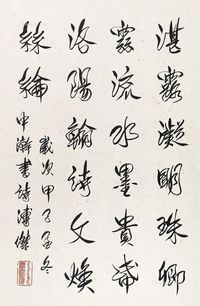 湛露凝明珠卿
流水墨貴
洛陽翰詩文煥
絲綸
歲次甲子孟冬
書詩溥傑